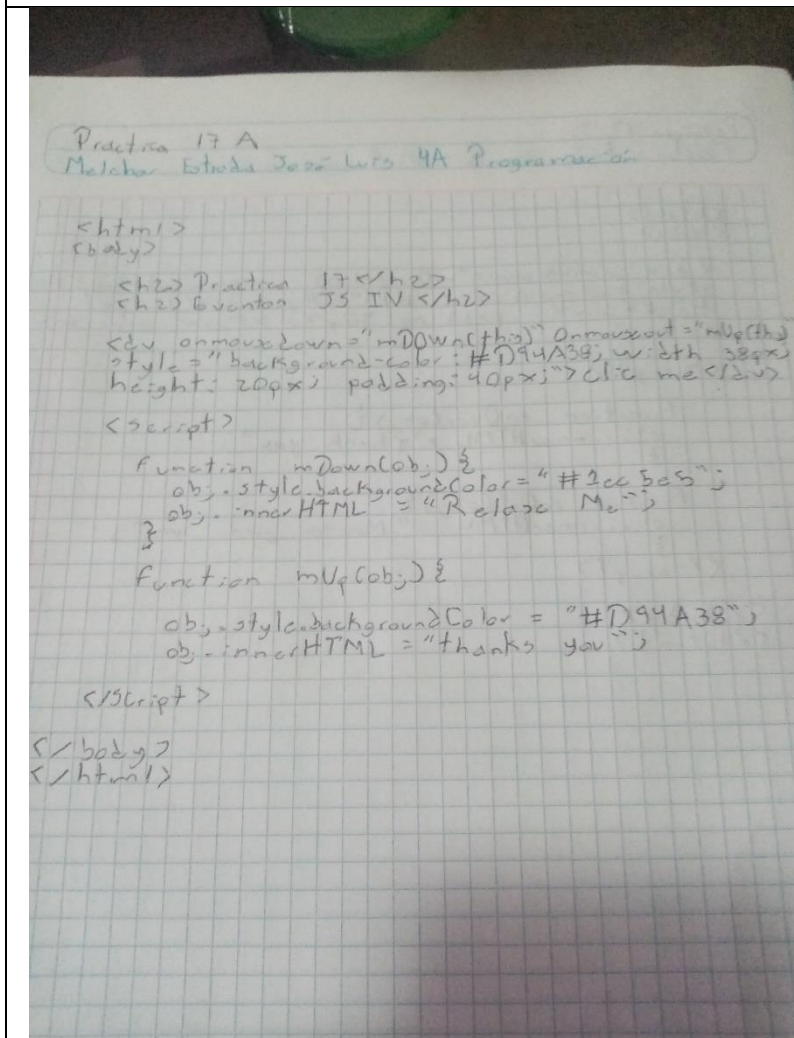 Practica 17 A
Melchor Estrada José Luis 4A Programación
<html>
<body>
<h2> Practica 17</h2>
<h2> Eventos JS IV </h2>
<div onmousedown="mDOwn(this)" Onmouseout="mUp(this)
style="background-color: #D94A38; width 38px;
height: 20px; padding: 40px;">clic me</div>
<script>
function mDown(obj) {
obj.style.backgroundColor="#1ec5e5";
obj.innerHTML = "Relase Me";
}
function mUp(obj) {
obj.style.backgroundColor = "#D94A38";
obj.innerHTML = "thanks you";
</script>
</body>
</html>